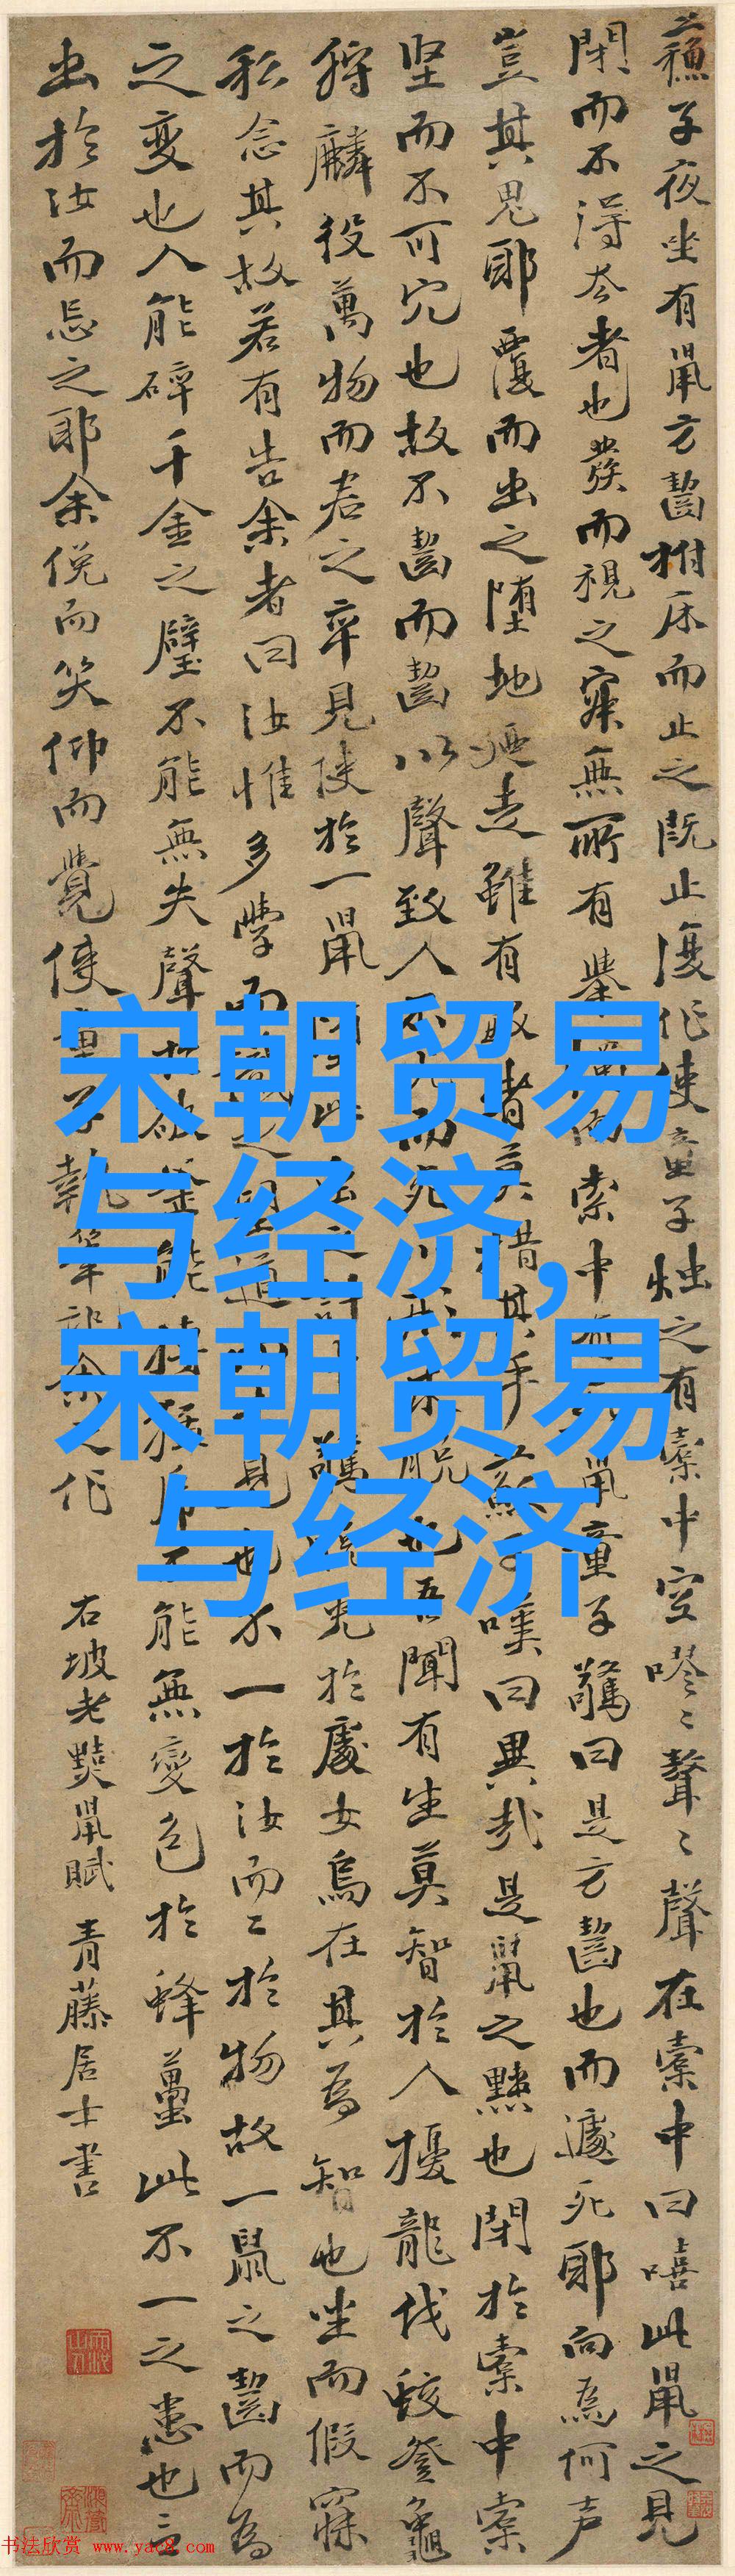 蘇子夜坐有鼠方齧拊床而止之既止復作使童子燭之有橐中空嘐〻聱〻聲在橐中曰嘻此鼠之見
閉而不得去者也發而視之寂無所有舉而索中鼠童子驚曰是方齧也而遽死耶向為何声
豈其鬼耶覆而出之墮地廼走雖有敏者莫措其手蘇子嘆曰異哉是鼠之黠也閉於橐中橐
坚而不可穴也故不齧而齧以聲致人不死而死以形求脫也吾聞有生莫智於人擾龍伐蛟登龜
狩麟役萬物而君之卒見使於一鼠此之計驚脫兔於處女烏在其為智也坐而假寐
私念其故若有告余者曰汝惟多學而識之望道見也不一於汝而二於物故一鼠之齧而為
之變也人能碎千金之璧不能無失聲於破釜能搏猛虎不能無變色於蜂蠆此不一之患也言
出於汝而忘之耶余俛而笑仰而覺使童子執筆記余之作
右坡老黠鼠賦 青藤居士書
宋朝贸易
与经济,
宋朝贸易
与经济
书法欣赏 www.yac8.com